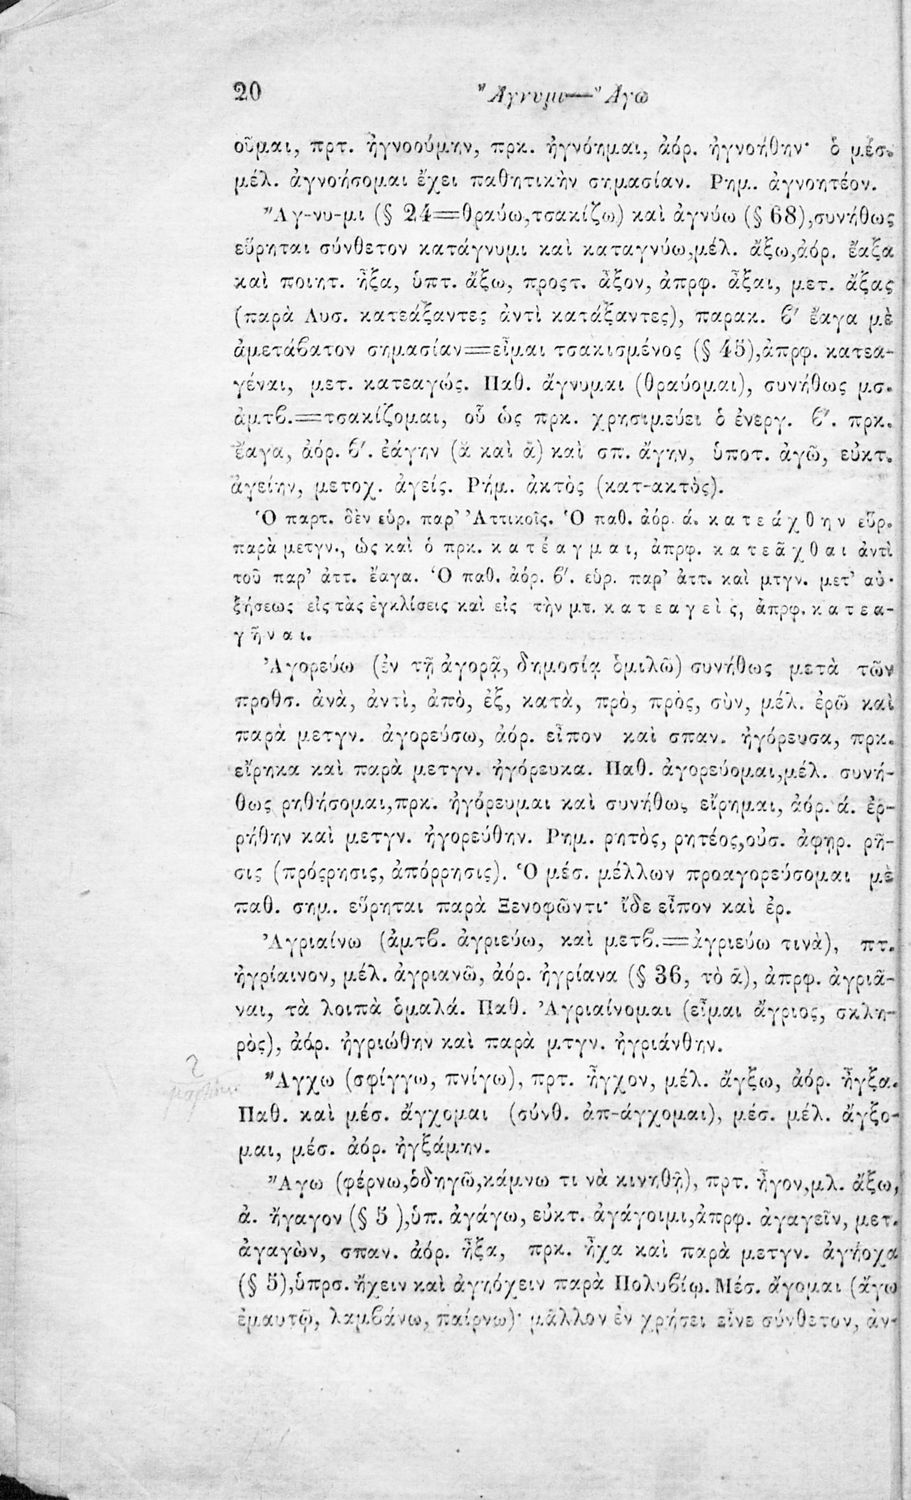 20 Ἄγνυμι—Ἄγω
οῦμαι, πρτ. ἠγνοούμην, πρκ. ἠγνόημαι, ἀόρ. ἠγνοήθην· ὁ μέσ.
μέλ. ἀγνοήσομαι ἔχει παθητικὴν σημασίαν. Ρημ. ἀγνοητέον.
Ἄγ-νυ-μι (§ 24=θραύω,τσακίζω) καὶ ἀγνύω (§ 68),συνήθως
εὕρηται σύνθετον κατάγνυμι καὶ καταγνύω,μέλ. ἄξω,ἀόρ. ἔαξα
καὶ ποιητ. ἦξα, ὑπτ. ἄξω, προςτ. ἆξον, ἀπρφ. ἆξαι, μετ. ἄξας
(παρὰ Λυσ. κατεάξαντες ἀντὶ κατάξαντες), παρακ. β′ ἔαγα μὲ
ἀμετάβατον σημασίαν=εἶμαι τσακισμένος (§ 45),ἀπρφ. κατεα-
γέναι, μετ. κατεαγώς. Παθ. ἄγνυμαι (θραύομαι), συνήθως μσ.
ἀμτβ.=τσακίζομαι, οὗ ὡς πρκ. χρησιμεύει ὁ ἐνεργ. β′. πρκ.
ἔαγα, ἀόρ. β′. ἐάγην (ᾰ καὶ ᾱ) καὶ σπ. ἄγην, ὑποτ. ἀγῶ, εὐκτ.
ἀγείην, μετοχ. ἀγείς. Ρήμ. ἀκτὸς (κατ-ακτὸς).
Ὁ παρτ. δὲν εὑρ. παρ’ Ἀττικοῖς. Ὁ παθ. ἀόρ. ά. κ α τ ε ά χ θ η ν εὕρ.
παρὰ μετγν., ὡς καὶ ὁ πρκ. κ α τ έ α γ μ α ι, ἀπρφ. κ α τ ε ᾶ χ θ α ι ἀντὶ
τοῦ παρ’ ἀττ. ἔαγα. Ὁ παθ. ἀόρ. β′. εὑρ. παρ’ ἀττ. καὶ μτγν. μετ’ αὐ-
ξήσεως εἰς τὰς ἐγκλίσεις καὶ εἰς τὴν μτ. κ α τ ε α γ ε ὶ ς, ἀπρφ. κ α τ ε α-
γ ῆ ν α ι.
Ἀγορεύω (ἐν τῇ ἀγορᾷ, δημοσίᾳ ὁμιλῶ) συνήθως μετὰ τῶν
προθσ. ἀνὰ, ἀντὶ, ἀπὸ, ἐξ, κατὰ, πρὸ, πρὸς, σὺν, μέλ. ἐρῶ καὶ
παρὰ μετγν. ἀγορεύσω, ἀόρ. εἶπον καὶ σπαν. ἠγόρευσα, πρκ.
εἴρηκα καὶ παρὰ μετγν. ἠγόρευκα. Παθ. ἀγορεύομαι,μέλ. συνή-
θως ῥηθήσομαι,πρκ. ἠγόρευμαι καὶ συνήθως εἴρημαι, ἀόρ. ά. ἐρ-
ρήθην καὶ μετγν. ἠγορεύθην. Ρημ. ρητὸς, ρητέος,οὐσ. ἀφηρ. ρῆ-
σις (πρόςρησις, ἀπόρρησις). Ὁ μέσ. μέλλων προαγορεύσομαι μὲ
παθ. σημ. εὕρηται παρὰ Ξενοφῶντι· ἴδε εἶπον καὶ ἐρ.
Ἀγριαίνω (ἀμτβ. ἀγριεύω, καὶ μετβ.=ἀγριεύω τινὰ), πτ.
ἠγρίαινον, μέλ. ἀγριανῶ, ἀόρ. ἠγρίανα (§ 36, τὸ ᾱ), ἀπρφ. ἀγριᾶ-
ναι, τὰ λοιπὰ ὁμαλά. Παθ. Ἀγριαίνομαι (εἶμαι ἄγριος, σκλη-
ρὸς), ἀόρ. ἠγριώθην καὶ παρὰ μτγν. ἠγριάνθην.
Ἄγχω (σφίγγω, πνίγω), πρτ. ἦγχον, μέλ. ἄγξω, ἀόρ. ἦγξα.
Παθ. καὶ μέσ. ἄγχομαι (σύνθ. ἀπ-άγχομαι), μέσ. μέλ. ἄγξο-
μαι, μέσ. ἀόρ. ἠγξάμην.
Ἄγω (φέρνω,ὁδηγῶ,κάμνω τι νὰ κινηθῇ), πρτ. ἦγον,μλ. ἄξω,
ἀ. ἤγαγον (§ 5 ),ὑπ. ἀγάγω, εὐκτ. ἀγάγοιμι,ἀπρφ. ἀγαγεῖν, μετ.
ἀγαγὼν, σπαν. ἀόρ. ἦξα, πρκ. ἦχα καὶ παρὰ μετγν. ἀγήοχα
(§ 5),ὑπρσ. ἤχειν καὶ ἀγηόχειν παρὰ Πολυβίῳ. Μέσ. ἄγομαι (ἄγω
ἐμαυτῷ, λαμβάνω, παίρνω)· μᾶλλον ἐν χρήσει εἶνε σύνθετον, ἀν-